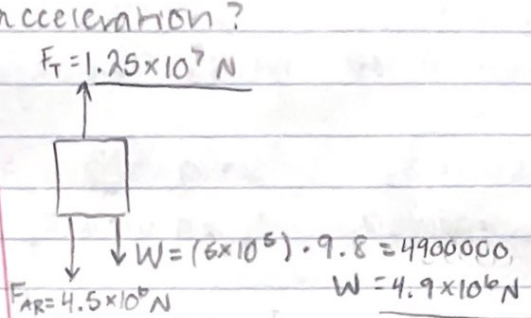 acceleration?
F_T = 1.25×10⁷ N
W = (5×10⁵) · 9.8 = 4900000
F_AR = 4.5×10⁶ N
W = 4.9×10⁶ N